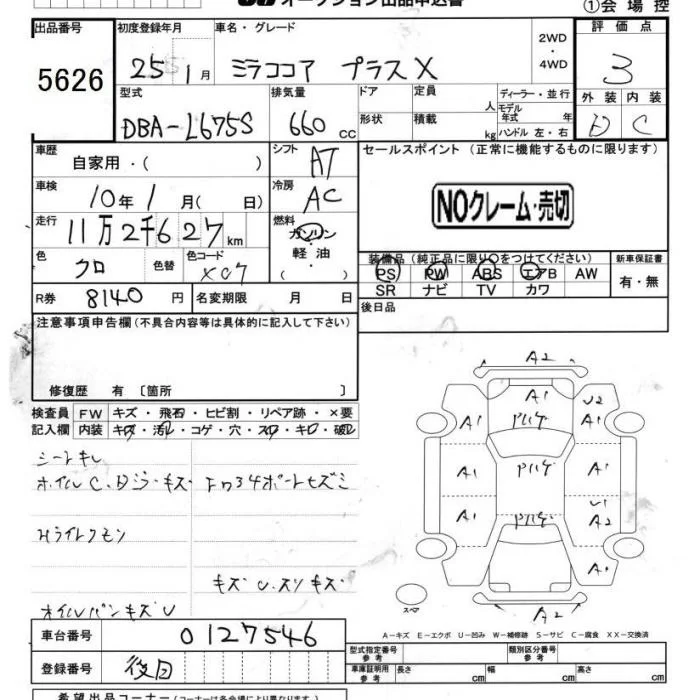 オークション出品申込書
①会場控
出品番号 初度登録年月 車名・グレード 評価点
5626 25 1月 ミラココア プラスX 2WD・4WD 3
型式 排気量 ドア 定員 人 ディーラー・並行 外装 内装
DBA-L675S 660 CC 形状 積載 kg モデル年式 年 ハンドル 左・右 D C
車歴 自家用・( ) シフト AT セールスポイント(正常に機能するものに限ります)
車検 10年1月( 日) 冷房 AC NOクレーム・売切
走行 11万2千627km 燃料 ガソリン・軽油・( )
色 クロ 色替 色コード X07 装備品(純正品に限り○をつけてください) 新車保証書
PS PW ABS エアB AW 有・無
SR ナビ TV カワ
R券 8140円 名変期限 月 日 後日品
注意事項申告欄(不具合内容等は具体的に記入して下さい)
修復歴 有〔箇所 〕
検査員記入欄 FW キズ・飛石・ヒビ割・リペア跡・×要
内装 キズ・汚レ・コゲ・穴・スレ・キレ・破レ
シートキレ
ホイルC.
Hライト
キズU.スリキズ
オイルパンキズU
A2
A1 U2
A1 A1
A1 A1
A1 U1
A2
A1
A2
スペア
A-キズ E-エクボ U-凹み W-補修跡 S-サビ C-腐食 XX-交換済
車台番号 0127546
登録番号 後日
型式指定番号参考 類別区分番号参考
車庫証明用参考 長さ cm 幅 cm 高さ cm
希望出品コーナー(コーナーは各会場により異なります)